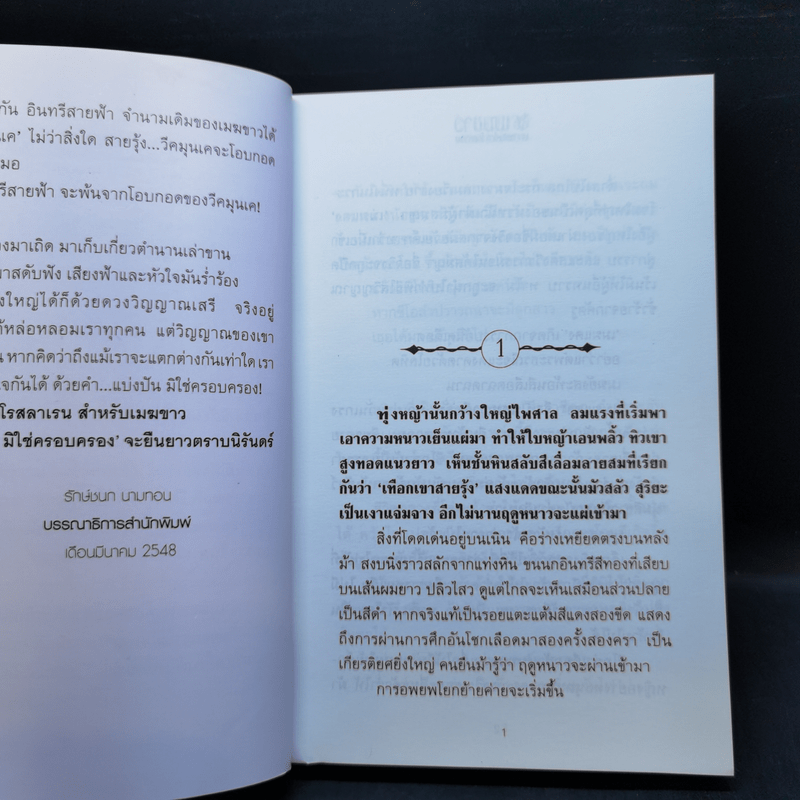 กัน อินทรีสายฟ้า จำนามเดิมของเมฆขาวได้
นเค' ไม่ว่าสิ่งใด สายรุ้ง...วีคมุนเคจะโอบกอด
มอ
รีสายฟ้า จะพ้นจากโอบกอดของวีคมุนเค!
งมาเถิด มาเก็บเกี่ยวตำนานเล่าขาน
าสดับฟัง เสียงฟ้าและหัวใจมันร่ำร้อง
งใหญ่ได้ก็ด้วยดวงวิญญาณเสรี จริงอยู่
ห้หล่อหลอมเราทุกคน แต่วิญญาณของเขา
น หากคิดว่าถึงแม้เราจะแตกต่างกันเท่าใด เรา
ใจกันได้ ด้วยคำ...แบ่งปัน มิใช่ครอบครอง!
โรสลาเรน สำหรับเมฆขาว
มิใช่ครอบครอง' จะยืนยาวตราบนิรันดร์
รักษ์ชนก นามทอน
บรรณาธิการสำนักพิมพ์
เดือนมีนาคม 2548
1
ทุ่งหญ้านั้นกว้างใหญ่ไพศาล ลมแรงที่เริ่มพา
เอาความหนาวเย็นแผ่มา ทำให้ใบหญ้าเอนพลิ้ว ทิวเขา
สูงทอดแนวยาว เห็นชั้นหินสลับสีเลื่อมลายสมที่เรียก
กันว่า 'เทือกเขาสายรุ้ง' แสงแดดขณะนั้นมัวสลัว สุริยะ
เป็นเงาแจ่มจาง อีกไม่นานฤดูหนาวจะแผ่เข้ามา
สิ่งที่โดดเด่นอยู่บนเนิน คือร่างเหยียดตรงบนหลัง
ม้า สงบนิ่งราวสลักจากแท่งหิน ขนนกอินทรีสีทองที่เสียบ
บนเส้นผมยาว ปลิวไสว ดูแต่ไกลจะเห็นเสมือนส่วนปลาย
เป็นสีดำ หากจริงแท้เป็นรอยแตะแต้มสีแดงสองขีด แสดง
ถึงการผ่านการศึกอันโชกเลือดมาสองครั้งสองครา เป็น
เกียรติยศยิ่งใหญ่ คนยืนม้ารู้ว่า ฤดูหนาวจะผ่านเข้ามา
การอพยพโยกย้ายค่ายจะเริ่มขึ้น
1